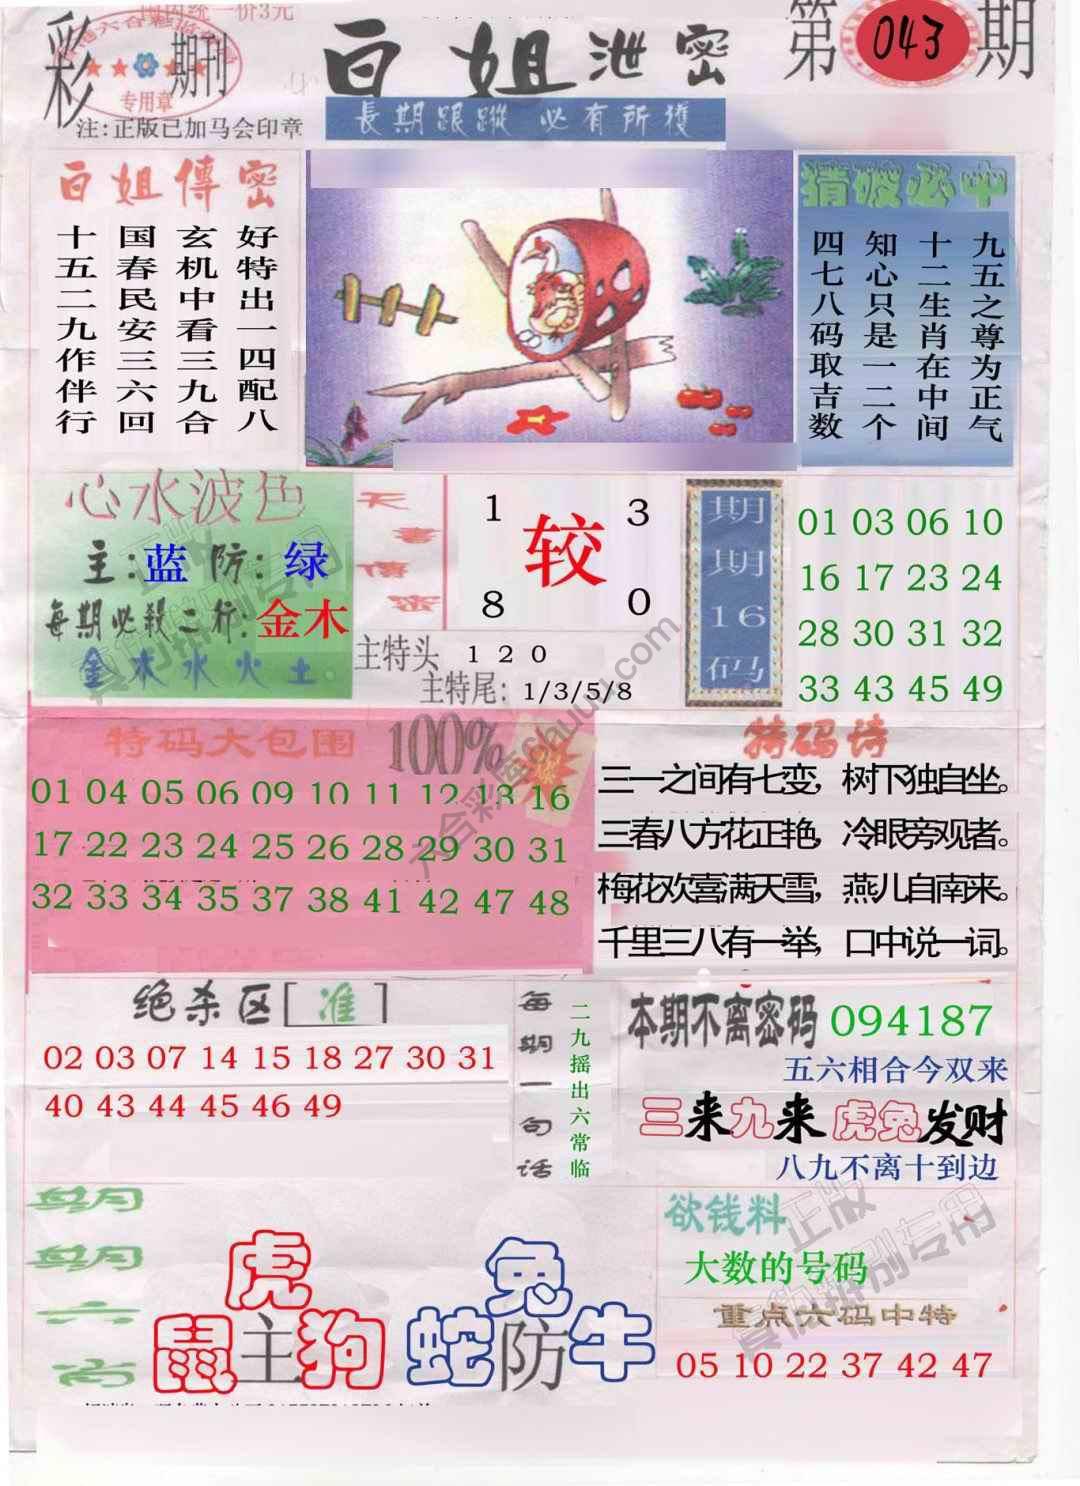 国统一价3元
彩
期刊
专用章
注:正版已加马会印章
白姐泄密
第043期
長期跟蹤 必有所獲
白姐傳密
好特出一四配八
玄机中看三九合
国春民安三六回
十五二九作伴行
猜波必中
九五之尊为正气
十二生肖在中间
知心只是一二个
四七八码取吉数
心水波色
主:蓝 防:绿
每期必殺二行:金木
金木水火土
天書傳密
1 3
较
8 0
主特头 1 2 0
主特尾: 1/3/5/8
期期16码
01 03 06 10
16 17 23 24
28 30 31 32
33 43 45 49
特码大包围
100%
01 04 05 06 09 10 11 12 13 16
17 22 23 24 25 26 28 29 30 31
32 33 34 35 37 38 41 42 47 48
特码诗
三一之间有七变，树下独自坐。
三春八方花正艳，冷眼旁观者。
梅花欢喜满天雪，燕儿自南来。
千里三八有一举，口中说一词。
绝杀区[准]
02 03 07 14 15 18 27 30 31
40 43 44 45 46 49
每期一句话
二九摇出六常临
本期不离密码 094187
五六相合今双来
三来九来 虎兔发财
八九不离十到边
期期六肖
虎
鼠主狗
兔
蛇防牛
欲钱料
大数的号码
重点六码中特
05 10 22 37 42 47